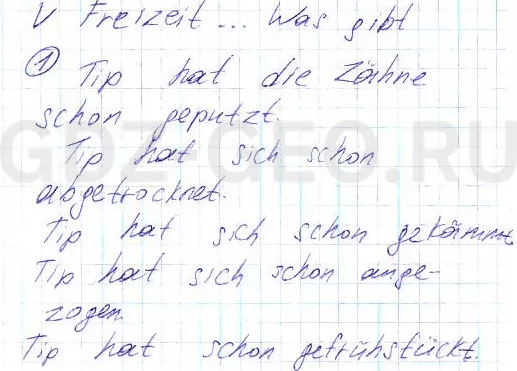 V Freizeit... Was gibt
① Tip hat die Zähne
schon geputzt.
Tip hat sich schon
abgetrocknet.
Tip hat sich schon gekämmt.
Tip hat sich schon ange-
zogen.
Tip hat schon gefrühstückt.
GDZ-GEO.RU